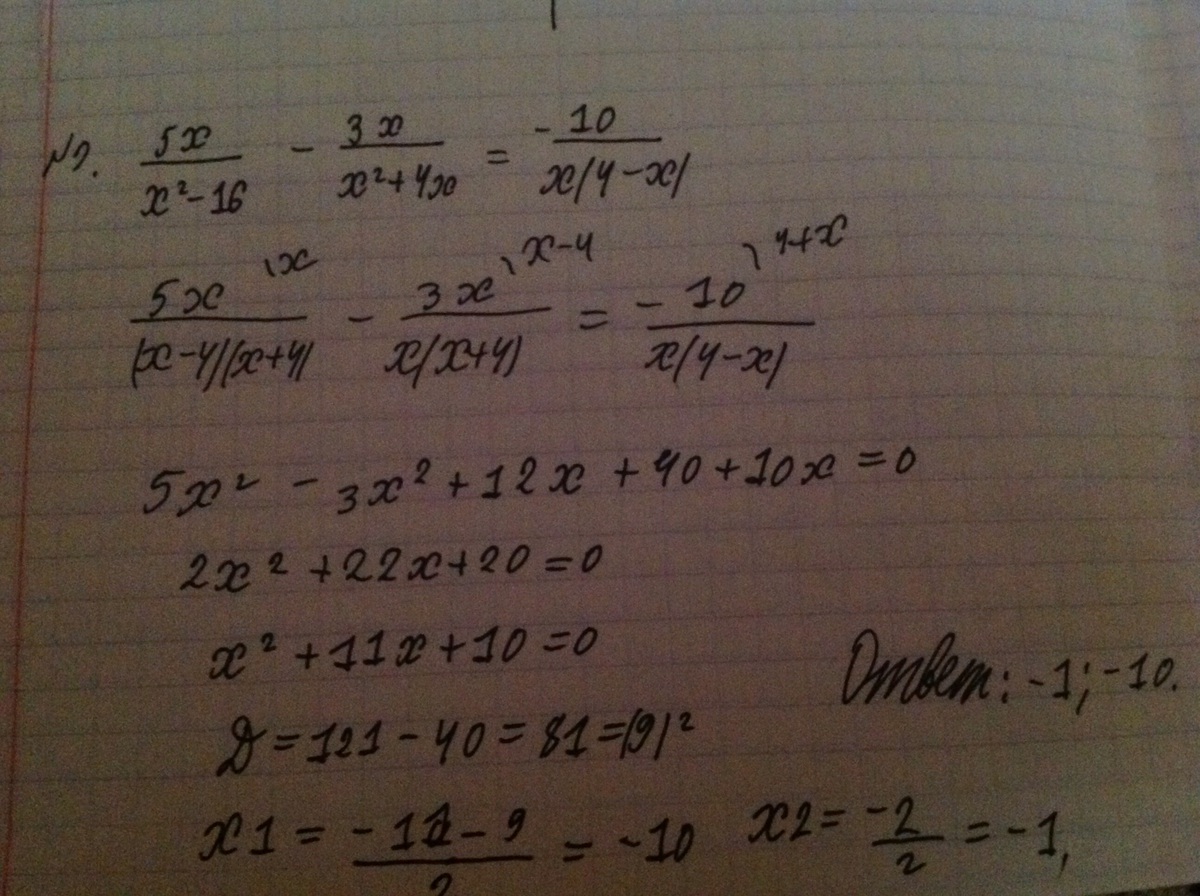 №2. 5x/(x²-16) - 3x/(x²+4x) = -10/(x(4-x))
5x\x/((x-4)(x+4)) - 3x\x-4/(x(x+4)) = -10\4+x/(x(4-x))
5x² - 3x² + 12x + 40 + 10x = 0
2x² + 22x + 20 = 0
x² + 11x + 10 = 0
Ответ: -1; -10.
D = 121 - 40 = 81 = (9)²
x1 = (-11 - 9)/2 = -10 x2 = -2/2 = -1,